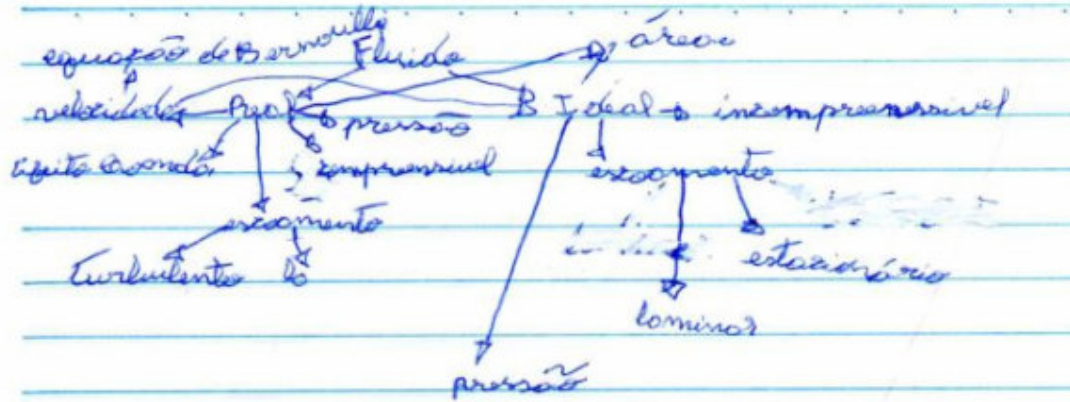 equação de Bernouilli Fluido área
velocidade Real pressão B Ideal incompreenssivel
Efeito Coandă compreensivel escoamento
escoamento
Turbulento estacionário
laminar
pressão